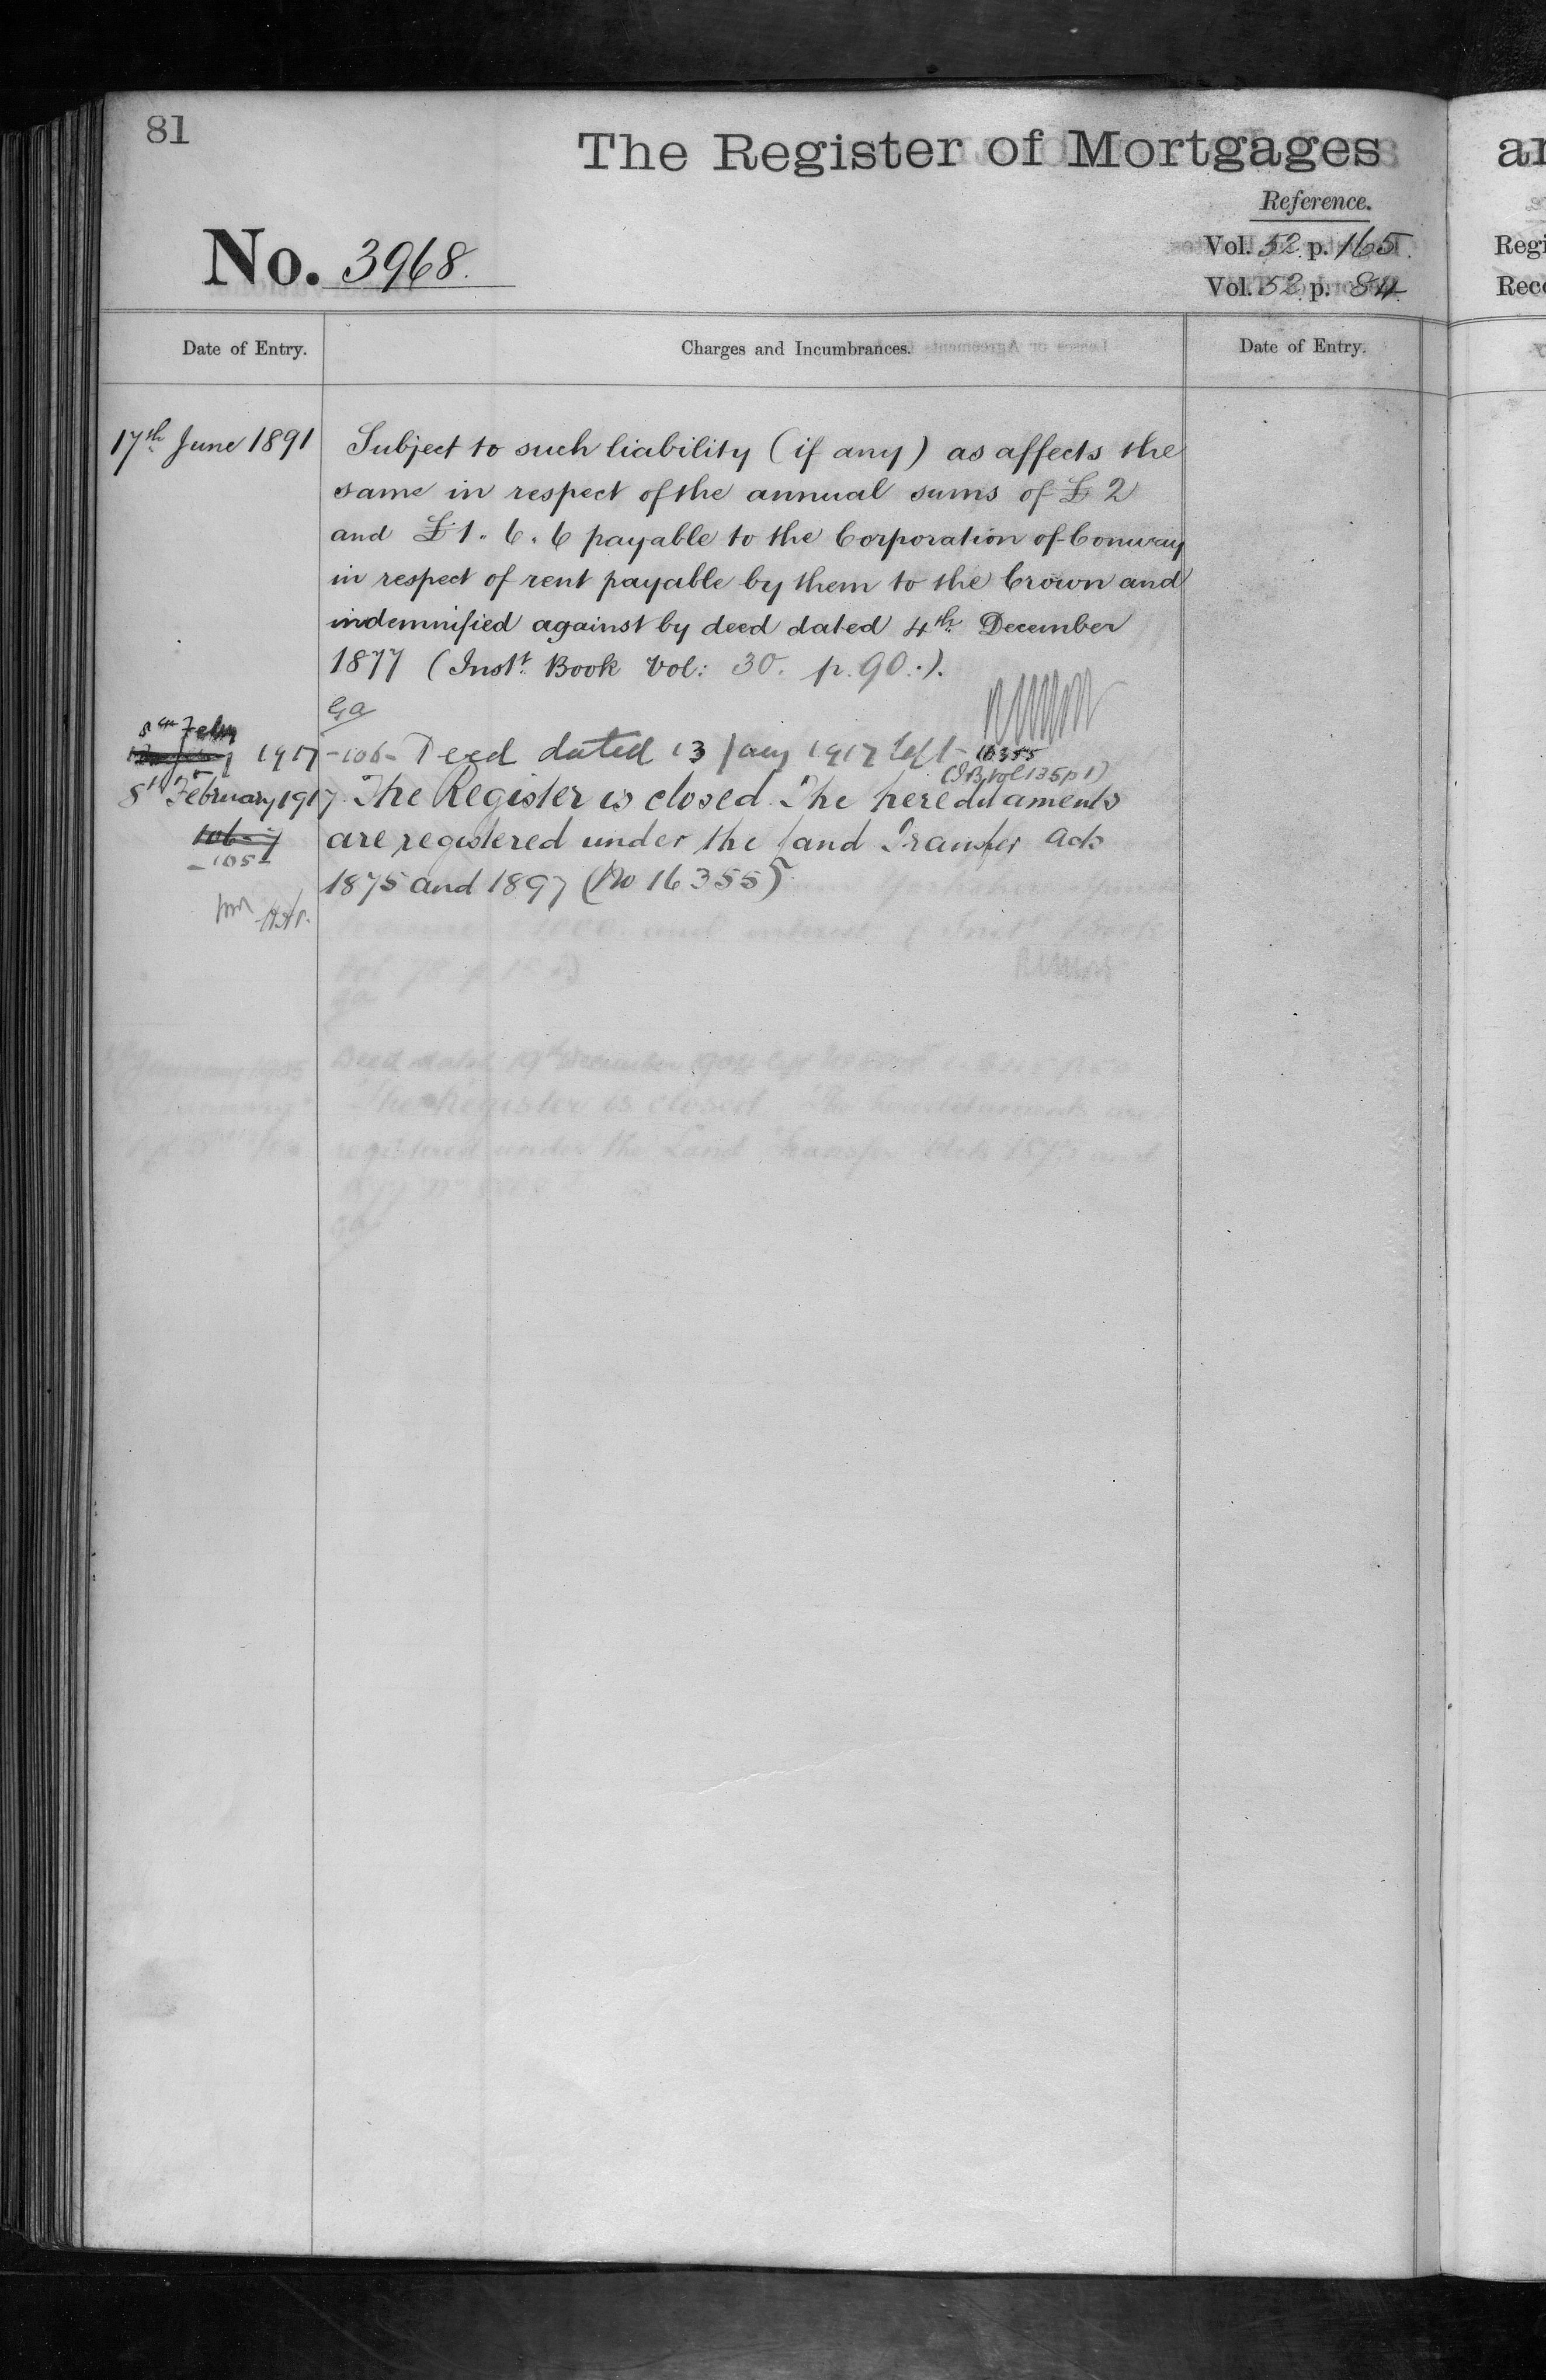 81
The Register of Mortgages
Reference.
No. 3968.
Vol. 52 p. 165.
Vol. 52 p. 84
Date of Entry.
Charges and Incumbrances.
Date of Entry.
17th June 1891
Subject to such liability (if any) as affects the
same in respect of the annual sums of £2
and £1. 6. 6 payable to the Corporation of Conway
in respect of rent payable by them to the Crown and
indemnified against by deed dated 4th December
1877 (Inst. Book Vol: 30. p. 90.).
Ga
8th Feby
1917 -106- Deed dated 13 Jany 1917 left - 16355
(I.B. Vol 135 p 1)
8th February 1917. The Register is closed. The hereditaments
are registered under the Land Transfer Acts
-105-
1875 and 1897 (No 16355)
ar
Regi
Reco